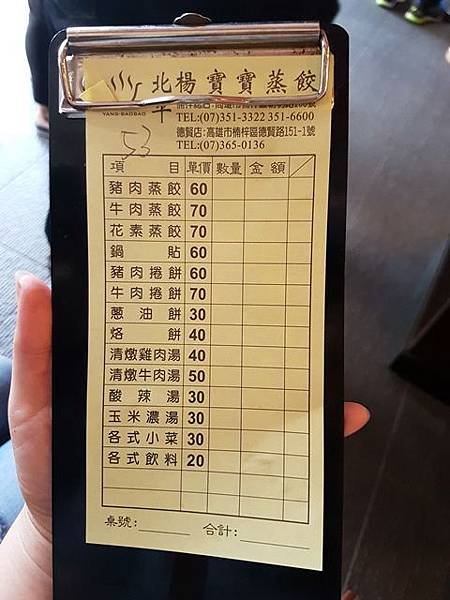 北楊寶寶蒸餃
YANG-BAOBAO
TEL:(07)351-3322 351-6600
德賢店:高雄市楠梓區德賢路151-1號
TEL:(07)365-0136
53
項目 單價 數量 金額
豬肉蒸餃 60
牛肉蒸餃 70
花素蒸餃 70
鍋貼 60
豬肉捲餅 60
牛肉捲餅 70
蔥油餅 30
烙餅 40
清燉雞肉湯 40
清燉牛肉湯 50
酸辣湯 30
玉米濃湯 30
各式小菜 30
各式飲料 20
桌號: 合計: